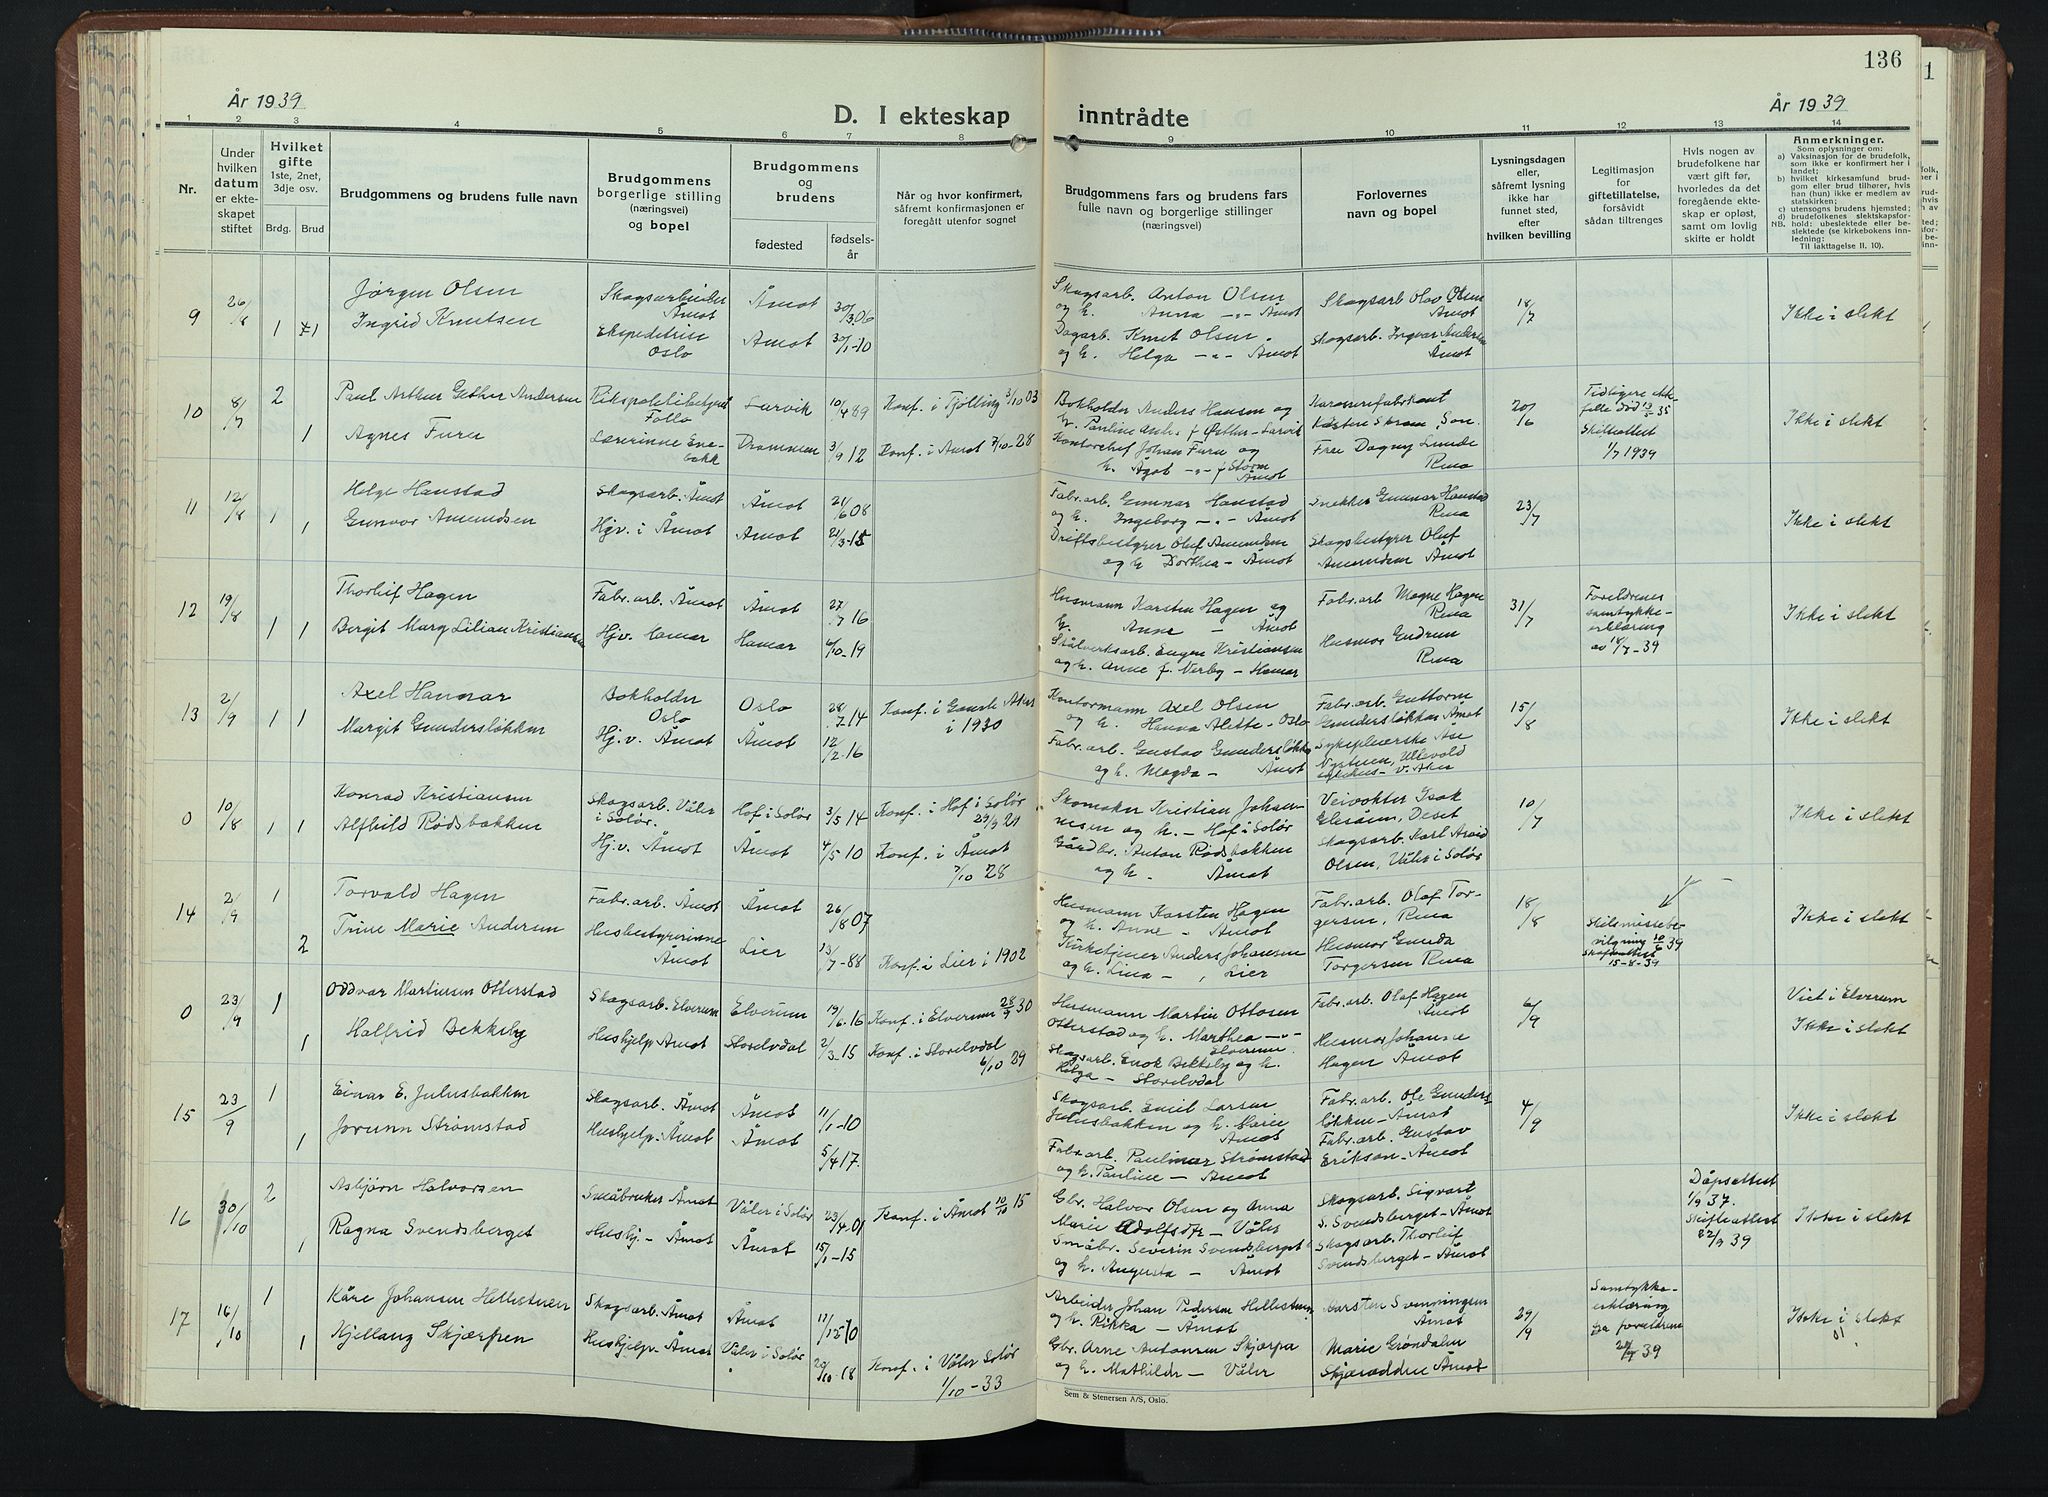 136
År 1939
D. I ekteskap inntrådte
År 1939
1 2 3 4 5 6 7 8 9 10 11 12 13 14
Nr.
Under hvilken datum er ekteskapet stiftet
Hvilket gifte 1ste, 2net, 3dje osv.
Brdg. Brud
Brudgommens og brudens fulle navn
Brudgommens borgerlige stilling (næringsvei) og bopel
Brudgommens og brudens
fødested
fødselsår
Når og hvor konfirmert, såfremt konfirmasjonen er foregått utenfor sognet
Brudgommens fars og brudens fars fulle navn og borgerlige stillinger (næringsvei)
Forlovernes navn og bopel
Lysningsdagen eller, såfremt lysning ikke har funnet sted, efter hvilken bevilling
Legitimasjon for giftetillatelse, forsåvidt sådan tiltrenges
Hvis nogen av brudefolkene har vært gift før, hvorledes da det foregående ekteskap er opløst, samt om lovlig skifte er holdt
Anmerkninger.
Som oplysninger om:
a) Vaksinasjon for de brudefolk, som ikke er konfirmert her i landet;
b) hvilket kirkesamfund brudgom eller brud tilhører, hvis han (hun) ikke er medlem av statskirken;
c) utensogns brudens hjemsted;
d) brudefolkenes slektskapsforhold: ubeslektede eller beslektede (se kirkebokens innledning:
NB.
Til iakttagelse II. 10).
9 26/8 Jørgen Olsen Skogsarbeider Åmot Åmot 30/3.06 Skogsarb. Anton Olsen og h. Anna -"- Åmot Skogsarb Olav Olsen Åmot 18/7 Ikke i slekt
1 1 Ingrid Knutsen Ekspeditrise Oslo Åmot 30/1-10 Dagarb. Knut Olsen og h. Helga -"- Åmot Skogsarb. Ingvar Andersen Åmot
10 8/7 2 Paul Arthur Andersen Rikspolitibetjent Follo Larvik 10/4 89 Konf. i Tjølling 3/10 03 Bokholder Anders Hansen og h. Pauline - Larvik Karosserifabrikant Son. 20/6 Tidligere ektefelle død 35 Skifteattest 1/7 1939 Ikke i slekt
1 Agnes Furu Lærerinne Enebakk Drammen 3/9 12 Konf. i Åmot 7/10-28 Kontorchef Johan Furu og h. Ågot -"- f. Storm Åmot Fru Dagny Lunde Rena
11 12/8 1 Helge Hanstad Skogsarb. Åmot Åmot 21/6 08 Fabr.arb. Gunnar Hanstad og h. Ingeborg -"- Åmot Snekker Gunnar Hanstad Rena 23/7 Ikke i slekt
1 Gunvor Amundsen Hjv. i Åmot Åmot 21/3-15 Driftsbestyrer Oluf Amundsen og h Dorthea - Åmot Skogsbestyrer Oluf Amundsen Åmot
12 19/8 Thorleif Hagen Fabr. arb. Åmot Åmot 27/7 16 Husmann Karsten Hagen og h. Anne - Åmot Fabr. arb Magne Hagen Rena 31/7 Foreldrenes samtykkeerklæring av 18/7-39 Ikke i slekt
1 1 Bergit Marg Lilian Kristiansen Hjv. Hamar Hamar 6/10-19 Stålverksarb. Eugen Kristiansen og h. Anne f. Verby - Hamar Husmor Gudrun Rena
13 2/9 1 1 Axel Hammar Bokholder Oslo Oslo 28/7 14 Konf. i Gamle Aker i 1930 Kontormann Axel Olsen og h. Hanna Alette - Oslo Fabr. arb. Guttorm Gundersløkken Åmot 15/8 Ikke i slekt
Margit Gundersløkken Hj.v. Åmot Åmot 12/2-16 Fabr. arb. Gustav Gundersløkken og h. Magda - Åmot Sykepleierske Ase Nystuen, Ullevold sykehus - V. Aker
0 10/8 1 1 Konrad Kristiansen Skogsarb. Våler i Solør. Hof i Solør 3/5 14 Konf. i Hof i Solør 29/9 Skomaker Kristian Johannesen og h. - Hof i Solør Veivokter Isak Eliesen, Deset 10/7 Ikke i slekt
Alfhild Rødsbakken Hj.v. Åmot Åmot 4/5 10 Konf. i Åmot 7/10 28 Gårdbr. Anton Rødsbakken og h. Åmot Skogsarb. Karl Arvid Olsen, Våler i Solør
14 2/9 1 Torvald Hagen Fabr. arb. Åmot Åmot 26/8 07 Husmann Karsten Hagen og h. Anne - Åmot Fabr. arb. Olaf Torgersen, Rena 18/8 Skilsmissebevilgning 10/6 39 Skifteattest 15-8-39 Ikke i slekt
2 Trine Marie Andersen Husbestyrerinne Åmot Lier 13/7-88 Konf. i Lier i 1902 Kirketjener Anders Johansen og h. Lina - , Lier Husmor Gunda Torgersen Rena
0 23/9 1 Oddvar Martinsen Otterstad Skogsarb. Elverum Elverum 19/6-16 Konf. i Elverum 28/9 30 Husmann Martin Ottosen Otterstad og h. Marthea -"- Elverum. Fabr. arb. Olaf Hagen Åmot 6/9 Viet i Elverum
1 Halfrid Bekksby Hushjelp Åmot Storelvdal 2/3-15 Konf. i Storelvdal 6/10 29 Skogsarb. Enok Bekksby og h. Helga - Storelvdal Husmor Johanne Hagen Åmot Ikke i slekt
15 23/9 1 Einar E. Julusbakken Skogsarb. Åmot Åmot 11/1-10 Skogsarb. Emil Larsen Julusbakken og h. Marie Åmot Fabr. arb. Ole Gundersløkken - Åmot 4/9 Ikke i slekt
1 Jorunn Strømstad Hushjelp. Åmot Åmot 5/4 17. Fabr. arb. Paulinar Strømstad og h. Pauline - Åmot Fabr. arb. Gustav Erikson - Åmot
16 30/10 2 Asbjørn Halvorsen Småbruker Åmot Våler i Solør 23/4.01 Konf. i Åmot 10/10 15 Gbr. Halvor Olsen og Anna Marie Adolfsdtr - Våler Skogsarb. Sigvart S. Svendsberget - Åmot Dåpsattest 1/9 37. Skifteattest 22/9 39 Ikke i slekt
1 Ragna Svendsberget Hushj. - Åmot Åmot 15/1-15 Småbr. Severin Svendsberget og h. Augusta - Åmot Skogsarb. Thorleif Svendsberget - Åmot
17 16/10 1 Kåre Johansen Hellestueen Skogsarb. Åmot Åmot Arbeider Johan Pedersen og h. Rikka - Åmot Karsten Svenningsen Åmot 29/9 Samtykkeerklæring fra foreldrene 39 Ikke i slekt
1 Kjellaug Skjærpen Hushjelp Åmot Våler i Solør 20/10-18 Konf. i Våler Solør 1/10-33 Gbr. Arne Antonsen Skjærpa og h. Mathilde - Våler Marie Grøndalen Åmot
Sem & Stenersen A/S, Oslo.